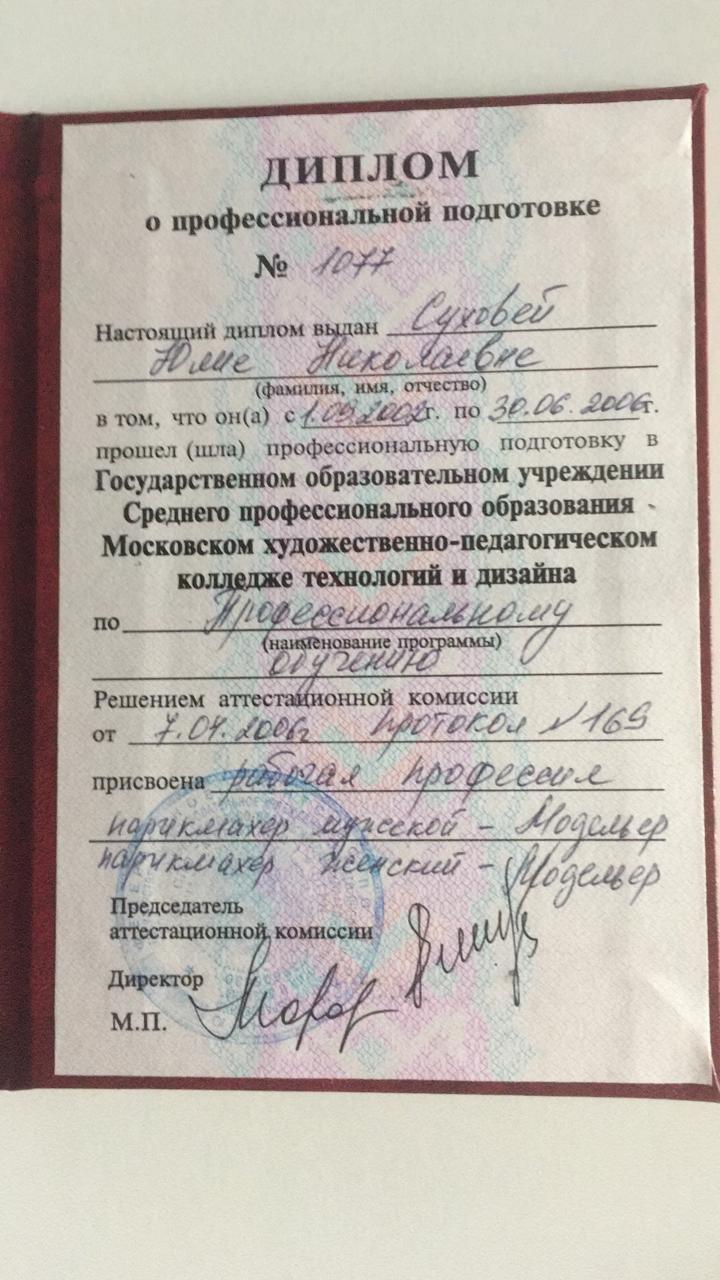 ДИПЛОМ
о профессиональной подготовке
№ 1077
Настоящий диплом выдан Суховей
Юлие Николаевне
(фамилия, имя, отчество)
в том, что он(а) с 1.09.2002г. по 30.06.2006г.
прошел (шла) профессиональную подготовку в
Государственном образовательном учреждении
Среднего профессионального образования
Московском художественно-педагогическом
колледже технологий и дизайна
по Профессиональному
(наименование программы)
обучению
Решением аттестационной комиссии
от 7.07.2006г Протокол №169
присвоена рабочая профессия
парикмахер мужской - Модельер
парикмахер женский - Модельер
Председатель
аттестационной комиссии
Директор
М.П.